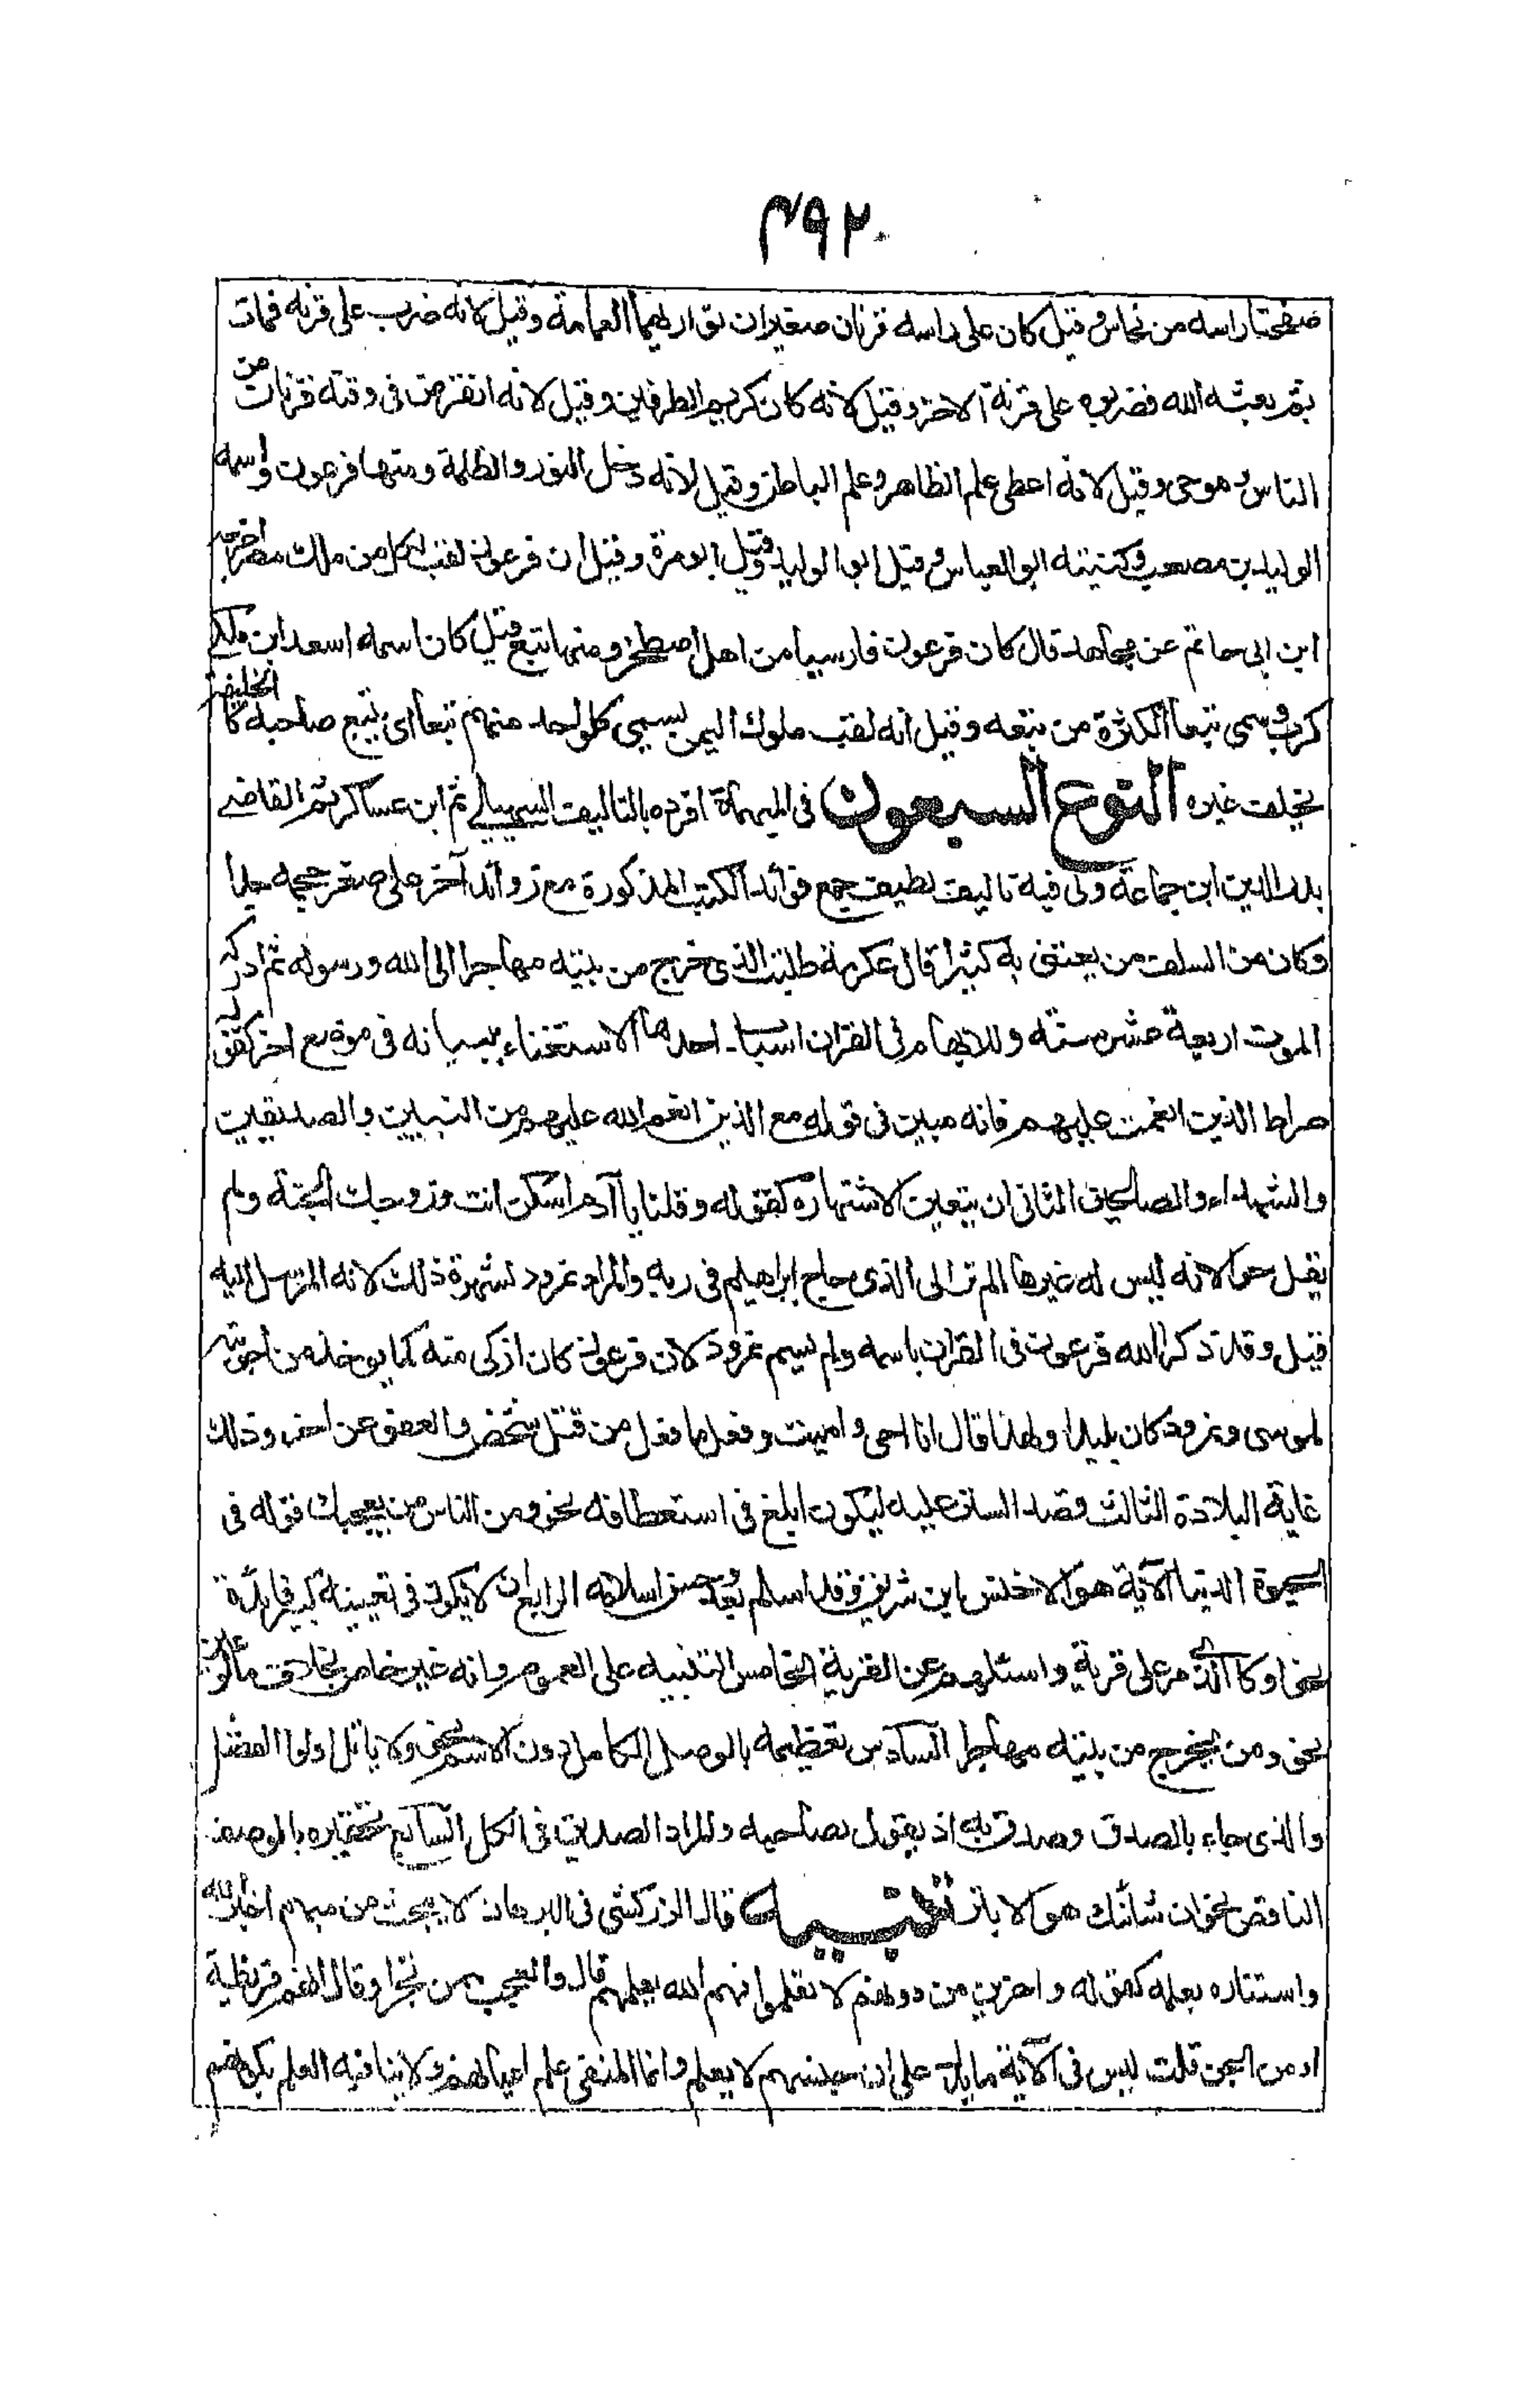 ٤٩٢
صفحتا راسه من نحاس وقيل كان على راسه قرنان صغيران تواريهما العمامة وقيل لانه ضرب على قرنه فمات
ثم بعثه الله فضربوه على قرنه الاخر وقيل لانه كان كريم الطرفين وقيل لانه انقرض فى وقته قرنان من
الناس وهو حى وقيل لانه اعطى علم الظاهر وعلم الباطن وقيل لانه دخل النور والظلمة ومنها فرعون واسمه
الوليد بن مصعب وكنيته ابو العباس وقيل ابو الوليد وقيل ابو مرة وقيل ان فرعون لقب لكل من ملك مصر اخرج
ابن ابى حاتم عن مجاهد قال كان فرعون فارسيا من اهل اصطخر ومنها تبع قيل كان اسمه اسعد ابن ملكى
كرب وسمى تبعا لكثرة من تبعه وقيل انه لقب ملوك اليمن يسمى كل واحد منهم تبعا اى يتبع صاحبه كالخليفة
يخلف غيره النوع السبعون فى المبهمات افرده بالتاليف السهيلى ثم ابن عساكر ثم القاضے
بدر الدين ابن جماعة ولى فيه تاليف لطيف جمع فوائد الكتب المذكورة مع زوائد آخر على صغر حجمه جدا
وكان من السلف من يعتنى به كثيرا قال عكرمة طلبت الذى خرج من بيته مهاجرا الى الله ورسوله ثم ادركه
الموت اربعة عشر سنة وللابهام فى القران اسباب احدها الاستغناء ببيانه فى موضع اخر كقوله
صراط الذين انعمت عليهم فانه مبين فى قوله مع الذين انعم الله عليهم من النبيين والصديقين
والشهداء والصالحين الثانى ان يتعين لاشتهاره كقوله وقلنا يا آدم اسكن انت وزوجك الجنة ولم
يقل حوا لانه ليس له غيرها الم تر الى الذى حاج ابراهيم فى ربه والمراد نمرود لشهرة ذلك لانه المرسل اليه
قيل وقد ذكر الله فرعون فى القران باسمه ولم يسم نمرود لان فرعون كان اذكى منه كما يوخذ من اجوبته
لموسى ونمرود كان بليدا ولهذا قال انا احى واميت وفعل ما فعل من قتل شخص والعفو عن اخر وذلك
غاية البلادة الثالث قصد الستر عليه ليكون ابلغ فى استعطافه نحو ومن الناس من يعجبك قوله فى
الحيوة الدنيا الآية هو الاخنس ابن شريق وقد اسلم بعد وحسن اسلامه الرابع ان لا يكون فى تعيينه كبير فائدة
نحو او كالذى مر على قرية واسئلهم عن القرية الخامس التنبيه على العموم وانه غير خاص بخلاف ما لو عين
نحو ومن يخرج من بيته مهاجرا السادس تعظيمه بالوصف الكامل دون الاسم نحو ولا ياتل اولوا الفضل
والذى جاء بالصدق وصدق به اذ يقول لصاحبه والمراد الصديق فى الكل السابع تحقيره بالوصف
الناقص نحو ان شانئك هو الابتر تنبيه قال الزركشى فى البرهان لا يبحث من مبهم اخبر الله
واستثاره بعلمه كقوله واخرين من دونهم لا تعلمونهم الله يعلمهم قال والعجب ممن تجرا وقال انهم قريظة
او من الجن قلت ليس فى الآية ما يدل على ان جنسهم لا يعلم وانما المنفى علم اعيانهم ولا ينافيه العلم بكونهم